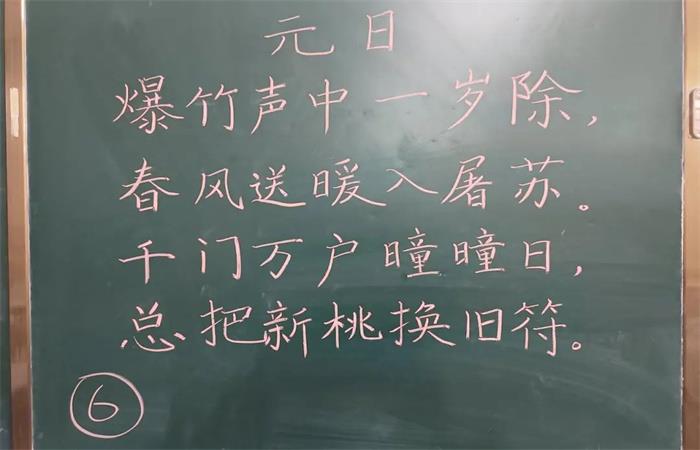 元日
爆竹声中一岁除，
春风送暖入屠苏。
千门万户曈曈日，
总把新桃换旧符。
6